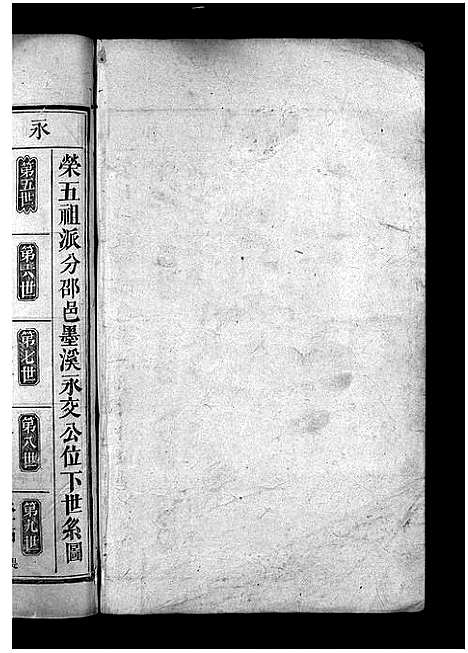 榮五祖派分邵邑墨溪永交公位下世系圖
永
第五世
第六世
第七世
第八世
第九世